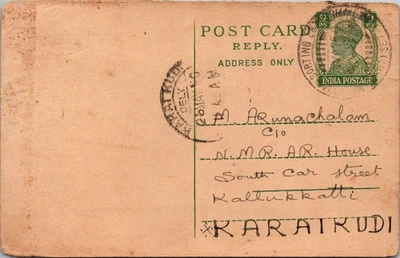 POST CARD
REPLY.
ADDRESS ONLY
INDIA POSTAGE
SORTING
KARAIKUDI
DELY
M. Arunachalam
C/o
N. M. R. AR. House
South Car Street
Kallukkatti
KARAIKUDI